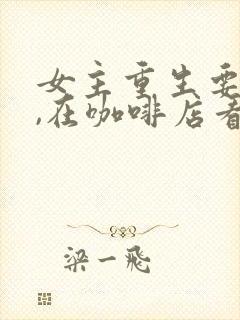 女主重生要
,在咖啡店看
梁一飛